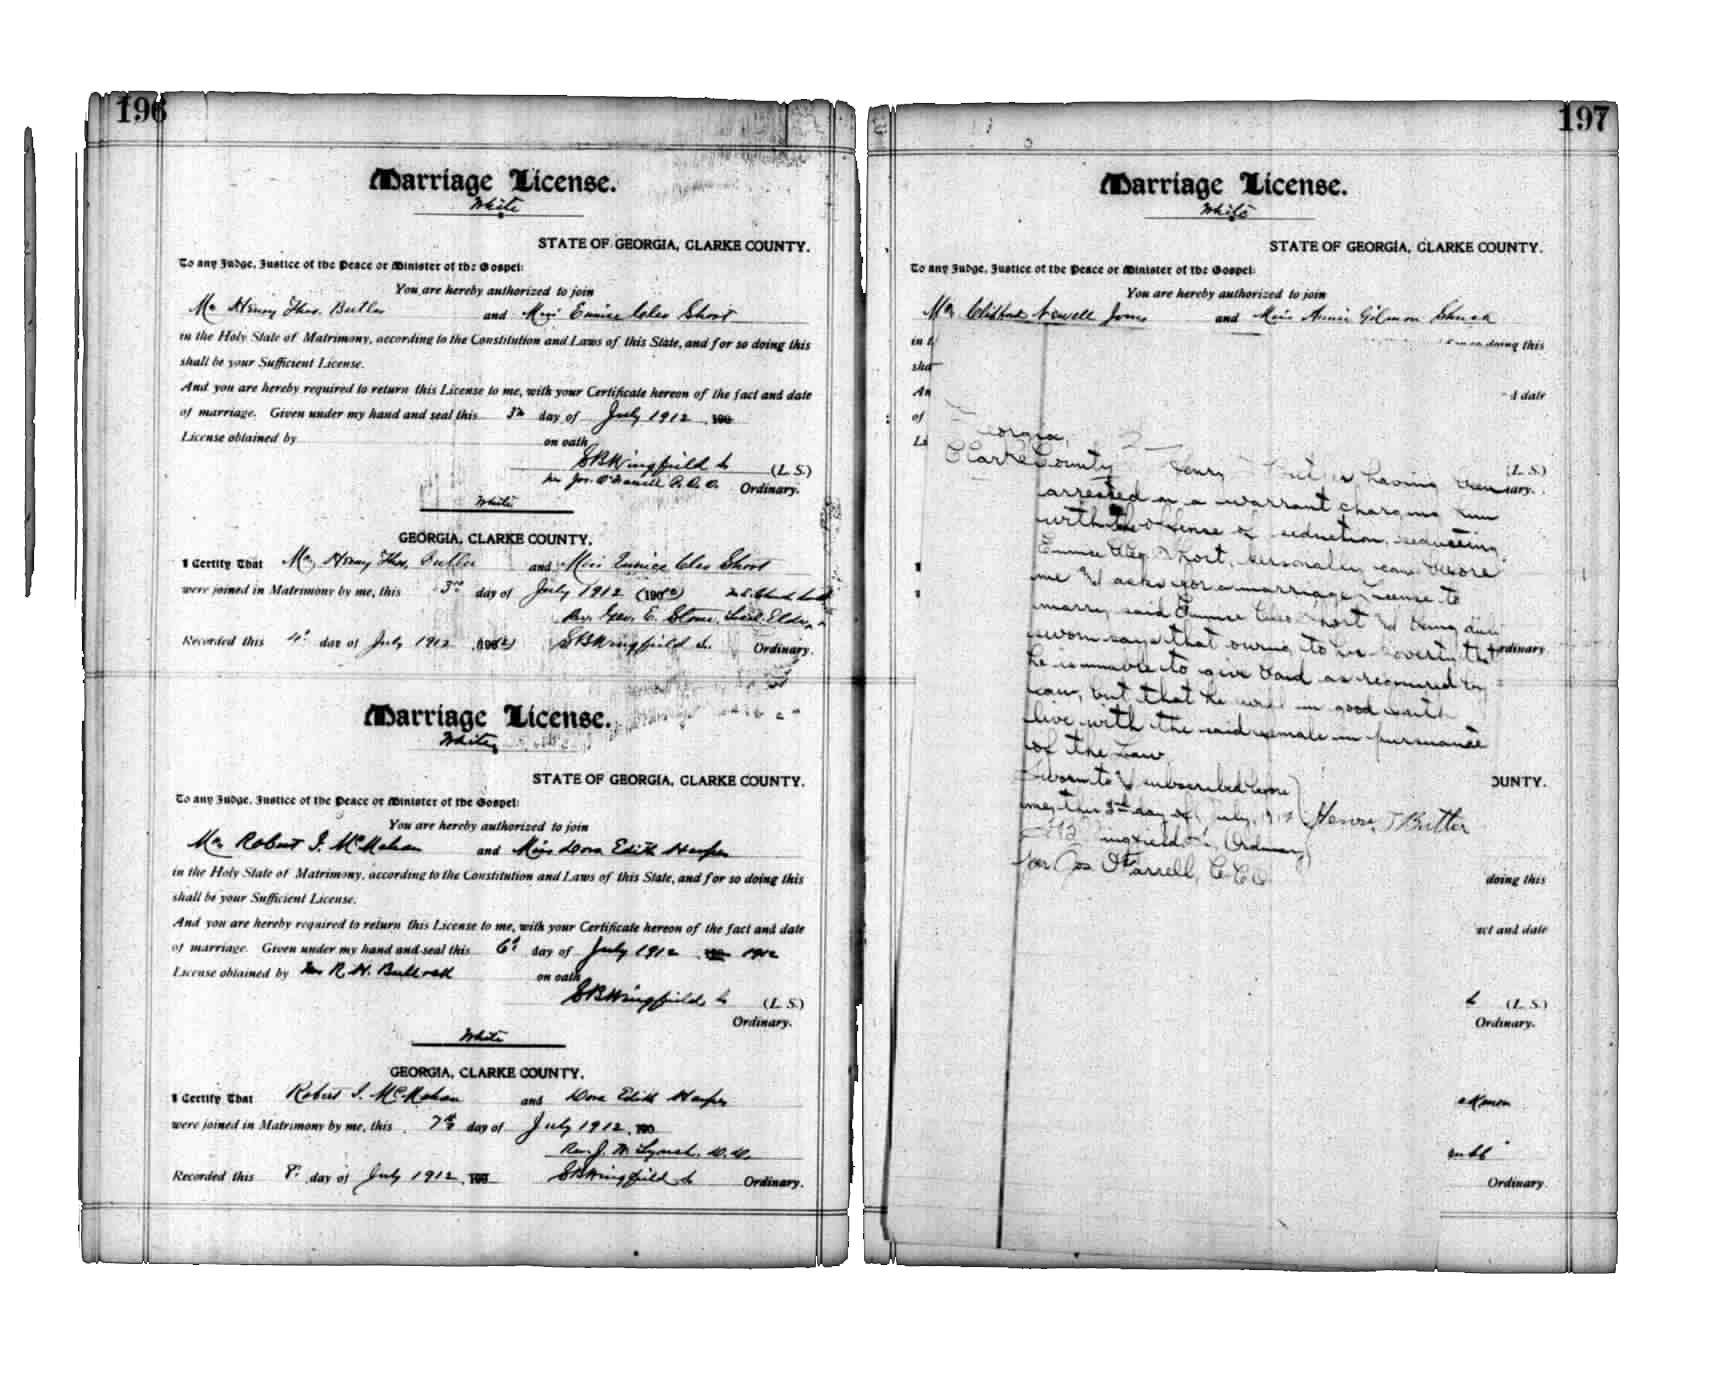 196
Marriage License.
White
STATE OF GEORGIA, CLARKE COUNTY.
To any Judge, Justice of the Peace or Minister of the Gospel:
You are hereby authorized to join
Mr Henry Thos. Butler and Miss Eunice Cleo Short
in the Holy State of Matrimony, according to the Constitution and Laws of this State, and for so doing this
shall be your Sufficient License.
And you are hereby required to return this License to me, with your Certificate hereon of the fact and date
of marriage. Given under my hand and seal this day of July 1912 , 190
License obtained by on oath
S B Wingfield (L. S.)
Ordinary.
White
GEORGIA, CLARKE COUNTY.
I Certify That Mr Henry Thos. Butler and Miss Eunice Cleo Short
were joined in Matrimony by me, this 3rd day of July 1912 (190
Rev. Geo. E. Stone,
Recorded this 4" day of July 1912 (190 S B Wingfield Ordinary.
Marriage License.
White
STATE OF GEORGIA, CLARKE COUNTY.
To any Judge, Justice of the Peace or Minister of the Gospel:
You are hereby authorized to join
Mr Robert I. McMahan and Miss Dora Edith Harper
in the Holy State of Matrimony, according to the Constitution and Laws of this State, and for so doing this
shall be your Sufficient License.
And you are hereby required to return this License to me, with your Certificate hereon of the fact and date
of marriage. Given under my hand and seal this 6" day of July 1912 1912
License obtained by R. H. on oath
S B Wingfield (L. S.)
Ordinary.
White
GEORGIA, CLARKE COUNTY.
I Certify That Robert I. McMahan and Dora Edith Harper
were joined in Matrimony by me, this 7th day of July 1912 , 190
Rev. J. W. Lynch,
Recorded this 8" day of July 1912 , 190 S B Wingfield Ordinary.
197
Marriage License.
White
STATE OF GEORGIA, CLARKE COUNTY.
To any Judge, Justice of the Peace or Minister of the Gospel:
You are hereby authorized to join
Mr Newell Jones and Miss Annie
in t doing this
sha
An d date
of
Li
Georgia,
Clarke County Henry T Butler having been
arrested on a warrant charging him
with the offense of seduction, seducing
Eunice Cleo Short, personally came before
me & asks for a marriage license to
marry said Eunice Cleo Short & being duly
sworn says that owing to his poverty that
he is unable to give bond as required by
law, but that he will in good faith
live with the said female in pursuance
of the Law.
Sworn to & subscribed before
me, this 3rd day of July, 1912 Henry T Butler
Wingfield Ordinary
per Jos O'Farrell, C C O
(L. S.)
ary.
rdinary
OUNTY.
doing this
act and date
(L. S.)
Ordinary.
Ordinary.